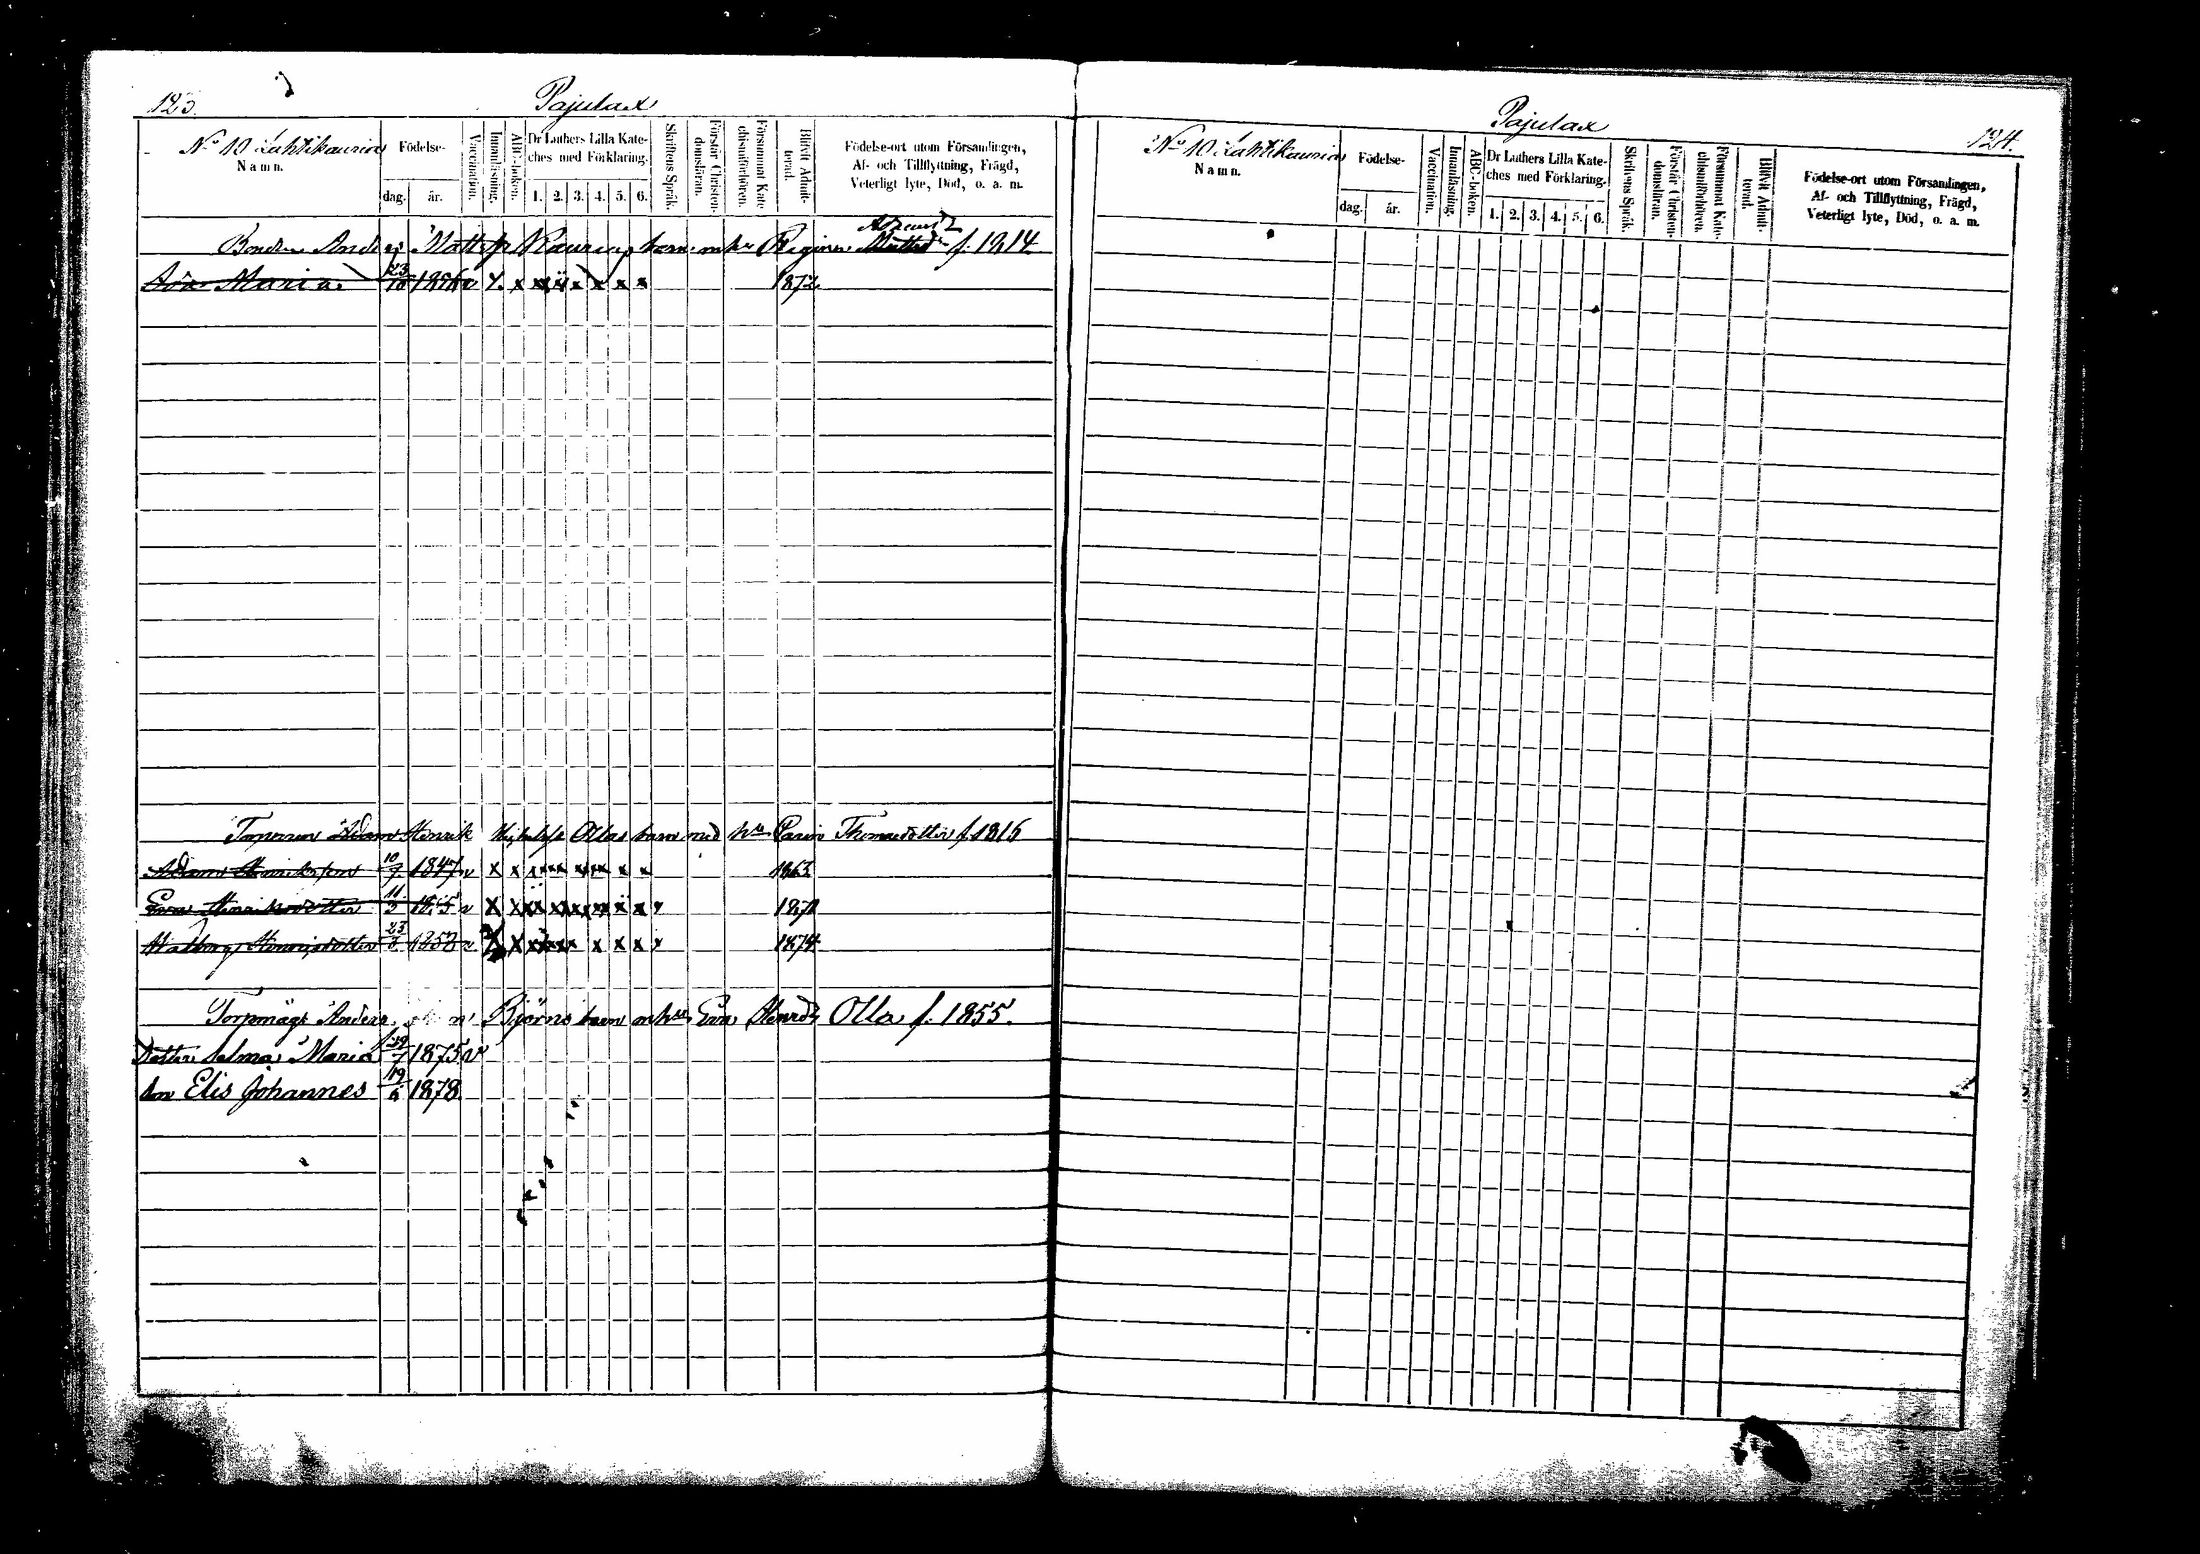 123.
Pajulax
No 10 Lahtikaurin
Namn.
Födelse-
dag. år.
Vaccination.
Innanläsning.
ABC-boken.
Dr Luthers Lilla Kate-
ches med Förklaring.
1. 2. 3. 4. 5. 6.
Skriftens Språk.
Förstår Christen-
domsläran.
Försummat Kate-
chismiförhören.
Blifvit Admit-
terad.
Födelse-ort utom Församlingen,
Af- och Tillflyttning, Frägd,
Veterligt lyte, Död, o. a. m.
Bonden Anders Matts Kaurins barn Regina f. 1814
Maria 23/10 1856 v x x x x x x x 1872
Torparen Adam Henrik Ollas barn med Thomasdotter f. 1816
Adam Henriksson 10/9 1847 v x x x x x x x 1863
Eva Henriksdotter 11/3 1855 v x x x x x x x 1871
Walborg Henriksdotter 23/3 1858 v x x x x x x x 1874
Torpmåg Anders Björns barn Eva Henrdr Olla f. 1855.
Dotter Selma Maria 29/7 1875 v
Son Elis Johannes 19/6 1878
Pajulax
124.
No 10 Lahtikaurin
Namn.
Födelse-
dag. år.
Vaccination.
Innanläsning.
ABC-boken.
Dr Luthers Lilla Kate-
ches med Förklaring.
1. 2. 3. 4. 5. 6.
Skriftens Språk.
Förstår Christen-
domsläran.
Försummat Kate-
chismiförhören.
Blifvit Admit-
terad.
Födelse-ort utom Församlingen,
Af- och Tillflyttning, Frägd,
Veterligt lyte, Död, o. a. m.